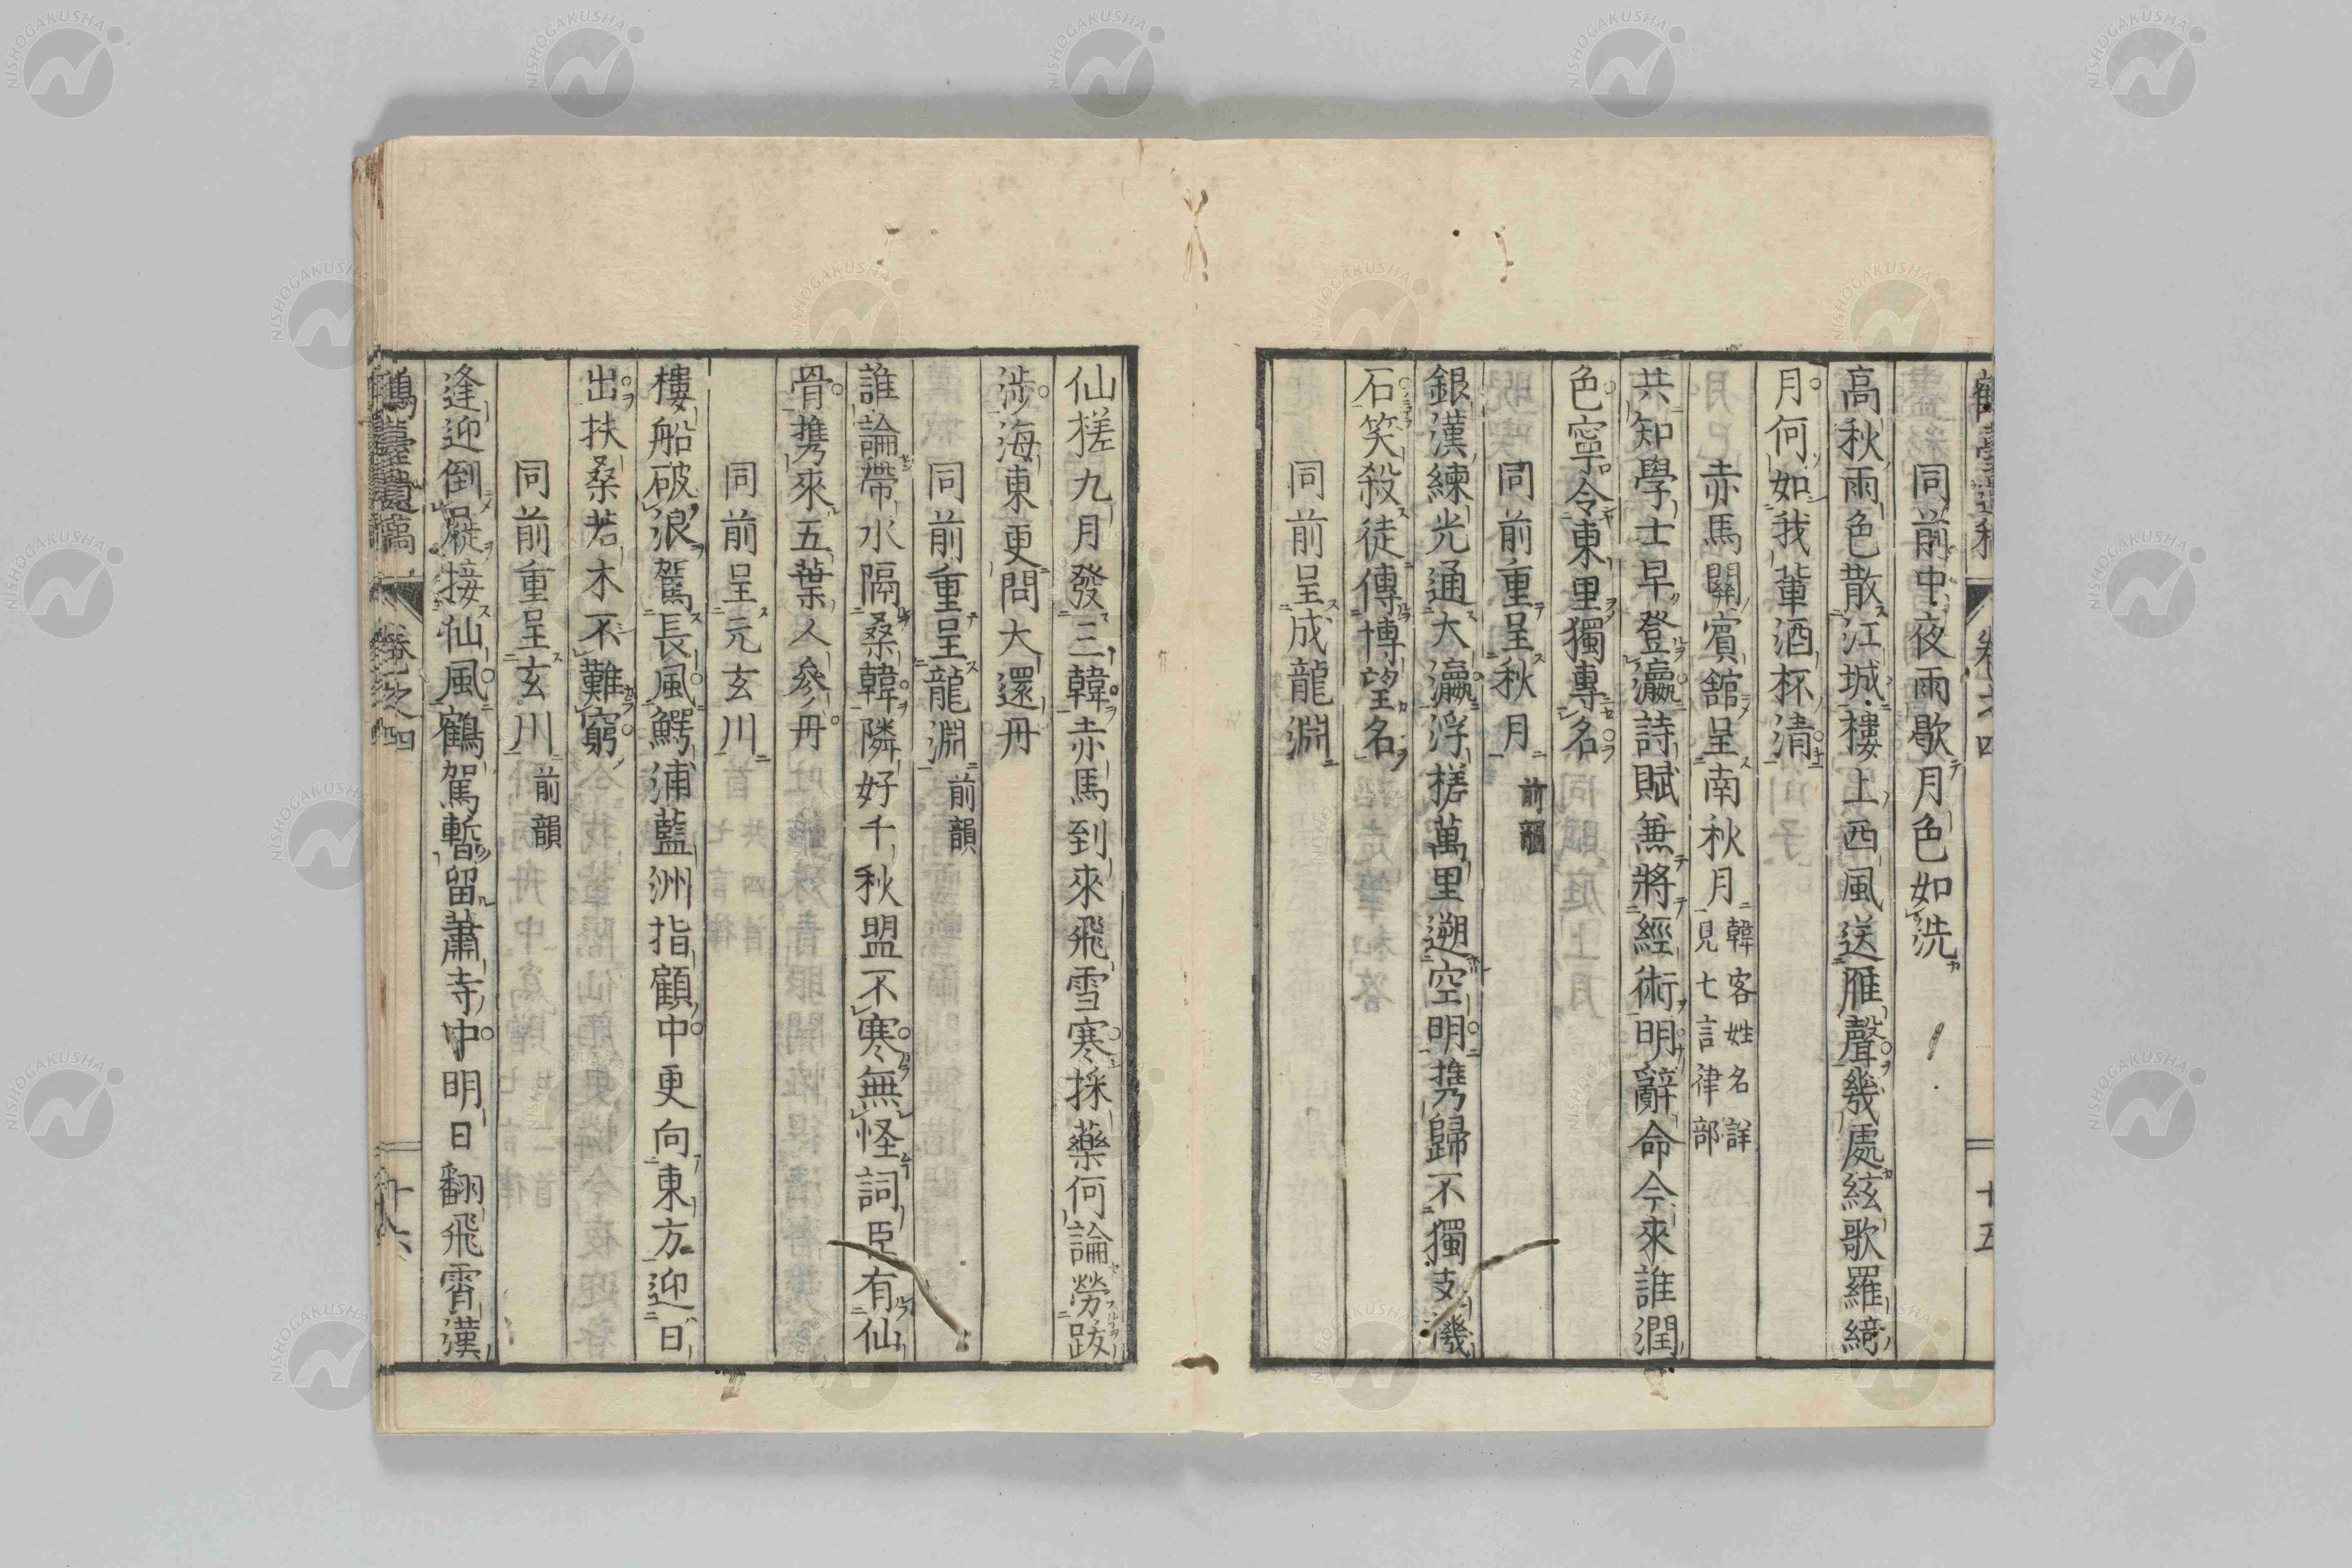 同前中夜雨歇月色如洗
高秋雨色散江城樓上西風送雁聲幾處絃歌羅綺
月何如我輩酒杯清
赤馬關賓舘呈南秋月 韓客姓名詳
見七言律部
共知學士早登瀛詩賦無將經術明辭命今來誰潤
色寧令東里獨專名
同前重呈秋月 前韻
銀漢練光通大瀛浮槎萬里遡空明携歸不獨支機
石笑殺徒傳博望名
同前呈成龍淵
仙槎九月發三韓赤馬到來飛雪寒採藥何論勞跋
涉海東更問大還丹
同前重呈龍淵 前韻
誰論帶水隔桑韓隣好千秋盟不寒無怪詞臣有仙
骨携來五葉人參丹
同前呈元玄川
樓船破浪駕長風鰐浦藍洲指顧中更向東方迎日
出扶桑若木不難窮
同前重呈玄川 前韻
逢迎倒屣接仙風鶴駕暫留蕭寺中明日翻飛霄漢
鶴臺遺稿 卷之四 十六
NISHOGAKUSHA